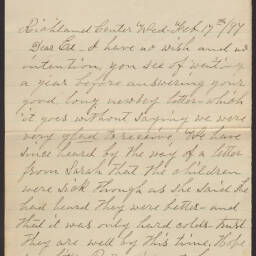 Richland Center Wed. Feb. 17th/97
Dear Ed - I have no wish and no
intention, you see of waiting
a year before answering your
good, long newsy letter - which
it goes without saying we were
very glad to receive. We have
since heard by the way of a letter
from Sarah that the children
were sick though as she said she
had heard they were better - and
that it was only hard colds - trust
they are well by this time. Hope